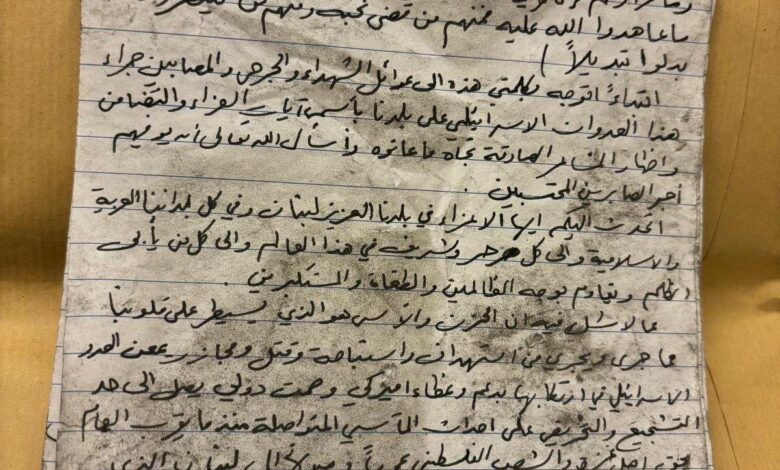 ما عاهدوا الله عليه فمنهم من قضى نحبه ومنهم من
بدلوا تبديلاً )
ابتداءً اتوجه بكلمتي هذه الى عوائل الشهداء والجرحى والمصابين جراء
هذا العدوان الاسرائيلي على بلدنا بأسمى آيات العزاء والتضامن
واظهار المشاعر الصادقة تجاه ما عانوه وأسأل الله تعالى أن يوفيهم
أجر الصابرين المحتسبين .
اتحدث اليكم ايها الاعزاء في بلدنا العزيز لبنان وفي كل بلداننا العربية
والاسلامية والى كل حر وشريف في هذا العالم والى كل من يأبى
الظلم ويقاوم بوجه الظالمين والطغاة والمستكبرين .
مما لا شك فيه ان الحزن والأسى هو الذي يسيطر على قلوبنا
مما جرى ويجري من استهداف واستباحة وقتل ومجازر يمعن العدو
الاسرائيلي في ارتكابها بدعم وغطاء اميركي وصمت دولي يصل الى حد
التشجيع والتحريض على احداث المآسي المتواصلة منذ ما يقرب العام
غزة والشعب الفلسطيني عموماً لبنان الذي